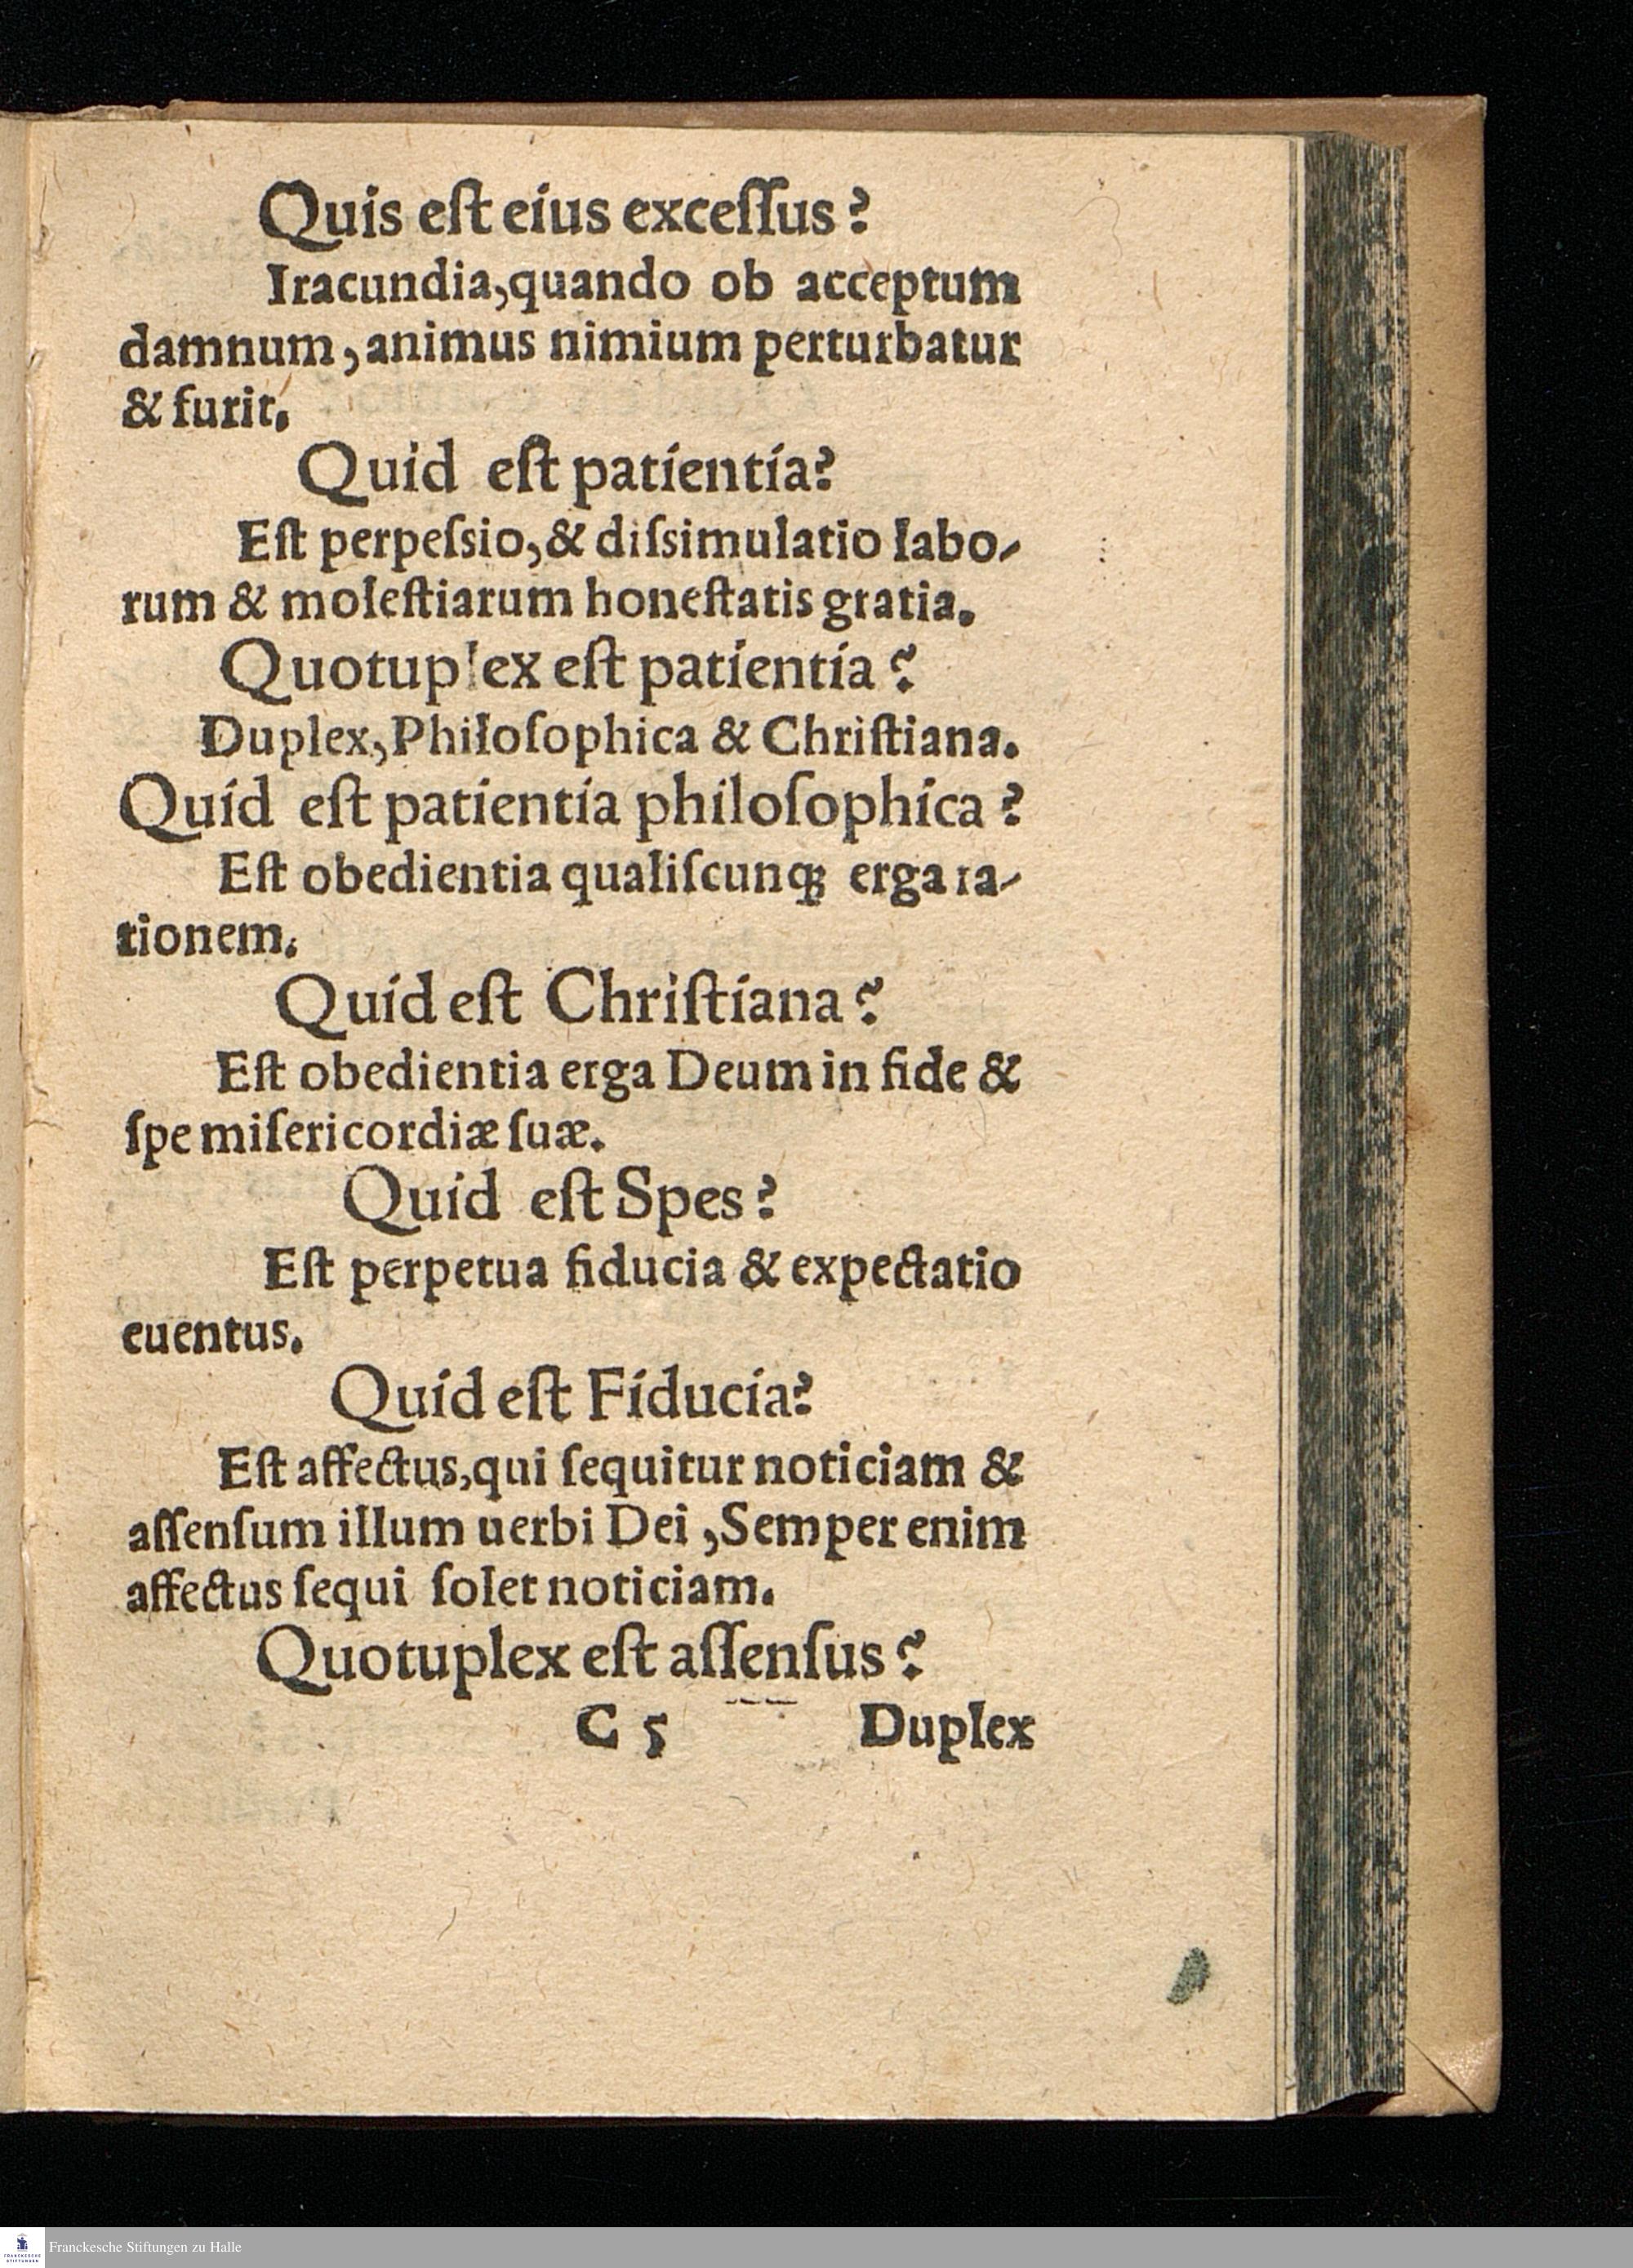 Quis eſt eius exceſſus?
Iracundia,quando ob acceptum
damnum, animus nimium perturbatur
& furit.
Quid eſt patientia?
Eſt perpeſsio,& diſsimulatio labo-
rum & moleſtiarum honeſtatis gratia.
Quotuplex eſt patientia?
Duplex, Philoſophica & Chriſtiana.
Quid eſt patientia philoſophica?
Eſt obedientia qualiſcunq; erga ra-
tionem.
Quid eſt Chriſtiana?
Eſt obedientia erga Deum in fide &
ſpe miſericordiæ ſuæ.
Quid eſt Spes?
Eſt perpetua fiducia & expectatio
euentus.
Quid eſt Fiducia?
Eſt affectus,qui ſequitur noticiam &
aſſenſum illum uerbi Dei ,Semper enim
affectus ſequi ſolet noticiam.
Quotuplex eſt aſſenſus?
C 5 Duplex
FRANCKESCHE
STIFTUNGEN
Franckesche Stiftungen zu Halle